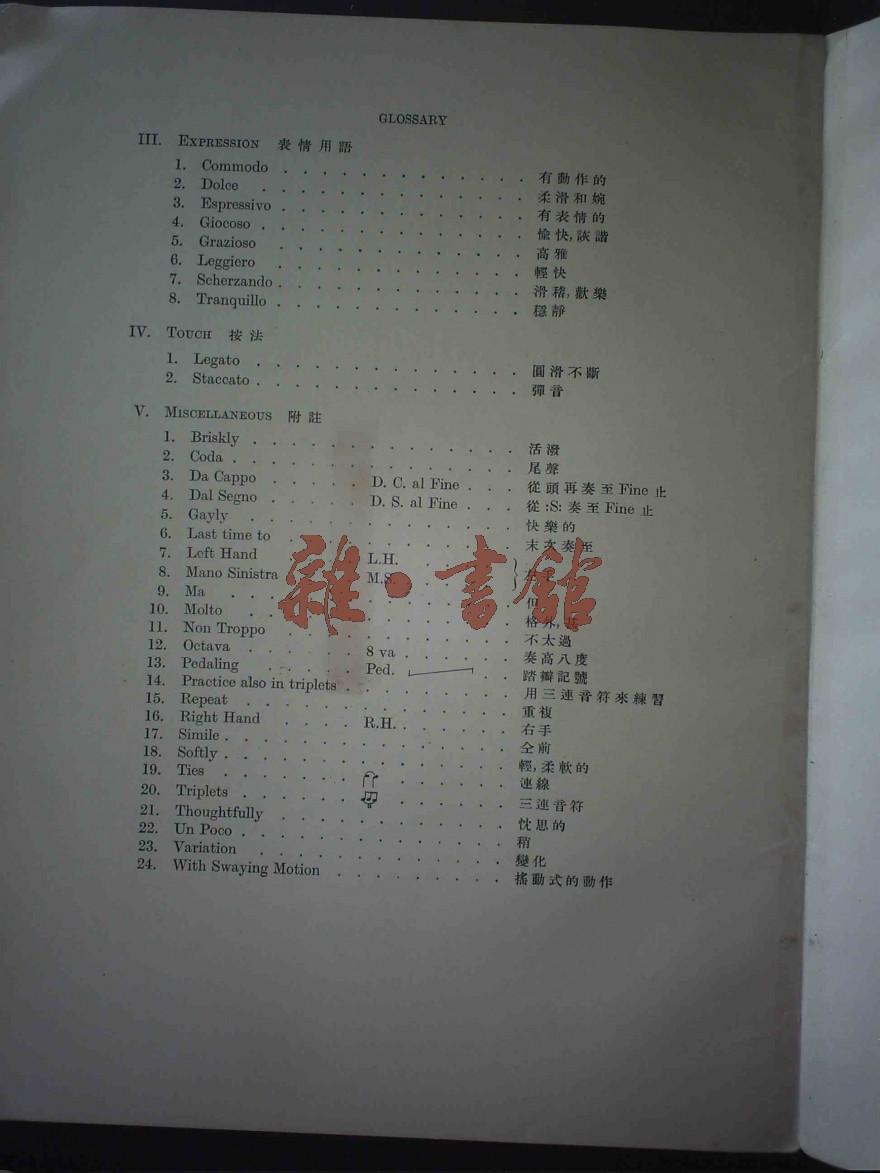 GLOSSARY
III. EXPRESSION 表情用語
1. Commodo . . . . . . . . . . . . . 有動作的
2. Dolce . . . . . . . . . . . . . 柔滑和婉
3. Espressivo . . . . . . . . . . . . . 有表情的
4. Giocoso . . . . . . . . . . . . . 愉快,詼諧
5. Grazioso . . . . . . . . . . . . . 高雅
6. Leggiero . . . . . . . . . . . . . 輕快
7. Scherzando . . . . . . . . . . . . . 滑稽,歡樂
8. Tranquillo . . . . . . . . . . . . . 穩靜
IV. TOUCH 按法
1. Legato . . . . . . . . . . . . . 圓滑不斷
2. Staccato . . . . . . . . . . . . . 彈音
V. MISCELLANEOUS 附註
1. Briskly . . . . . . . . . . . . . 活潑
2. Coda . . . . . . . . . . . . . 尾聲
3. Da Cappo . . . . . D. C. al Fine . . . 從頭再奏至 Fine 止
4. Dal Segno . . . . . D. S. al Fine . . . 從 :S: 奏至 Fine 止
5. Gayly . . . . . . . . . . . . . 快樂的
6. Last time to . . . . . . . . . . . 末次奏至
7. Left Hand L.H.
8. Mano Sinistra M.S.
雜·書館
9. Ma . . . . . . . . . . . . . 但
10. Molto . . . . . . . . . . . . . 格外,甚
11. Non Troppo . . . . . . . . . . . 不太過
12. Octava . . . . . 8 va . . . . . . 奏高八度
13. Pedaling . . . . . Ped. . . 踏瓣記號
14. Practice also in triplets . . . . . . . . 用三連音符來練習
15. Repeat . . . . . . . . . . . . . 重複
16. Right Hand . . . . R.H. . . . . . . 右手
17. Simile . . . . . . . . . . . . . 仝前
18. Softly . . . . . . . . . . . . . 輕,柔軟的
19. Ties . . . . . . . . . . . . . 連線
20. Triplets . . . . . . . . . . . 三連音符
21. Thoughtfully . . . . . . . . . . . 忱思的
22. Un Poco . . . . . . . . . . . . . 稍
23. Variation . . . . . . . . . . . . . 變化
24. With Swaying Motion . . . . . . . . . 搖動式的動作